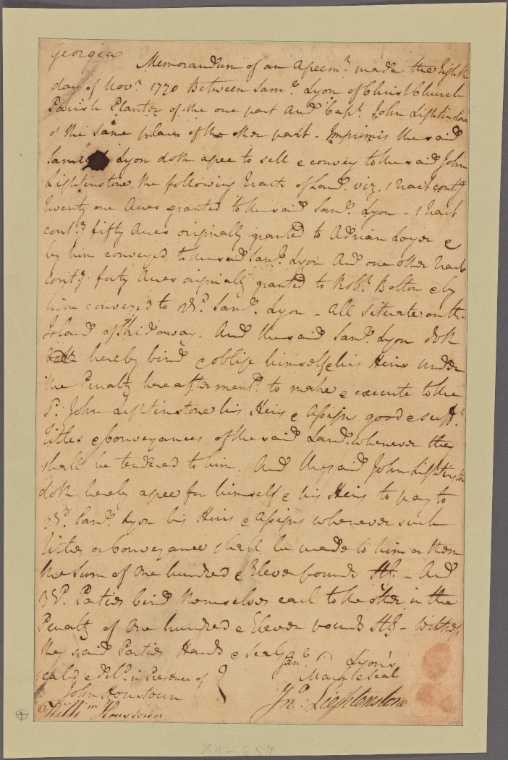 Georgia
Memorandum of an Agreemt. made the Eighth
day of Novr. 1770 Between Saml. Lyon of Christ Church
Parish Planter of the one part And Capt. John Lightinstone
of the same place of the other part - Imprimis the said
Samuel Lyon doth agree to sell & convey to the said John
Lightinstone the following tracts of Land viz. 1 tract contg.
twenty one Acres granted to the said Saml. Lyon - 1 tract
contg. fifty Acres originally granted to Adrian Loyer &
by him conveyed to the said Saml. Lyon And one other tract
contg. forty Acres originally granted to Robt. Bolton & by
him conveyed to sd. Saml. Lyon - all situate on the
Island of Skidoway. And the said Saml. Lyon doth
hereby bind & oblige himself & his Heirs under
the Penalty hereafter mentd. to make & execute to the
sd. John Lightinstone his Heirs & Assigns good & sufft.
titles & Conveyances of the said Land whenever the
shall be tendered to him. And the said John Lightinstone
doth hereby agree for himself & his Heirs to pay to
sd. Saml. Lyon his Heirs & Assigns whenever such
titles or Conveyance shall be made to him or them
the Sum of One hundred & Eleven pounds Stg. - And
sd. Parties bind themselves each to the other in the
Penalty of One hundred & Eleven pounds Stg - Witness
the said Parties Hands & Seals
Seald & Deld. in Presence of
Saml. Lyon's
Mark & Seal
John Houstoun
Jno. Lightenstone
Willm. Houstoun
XII-557